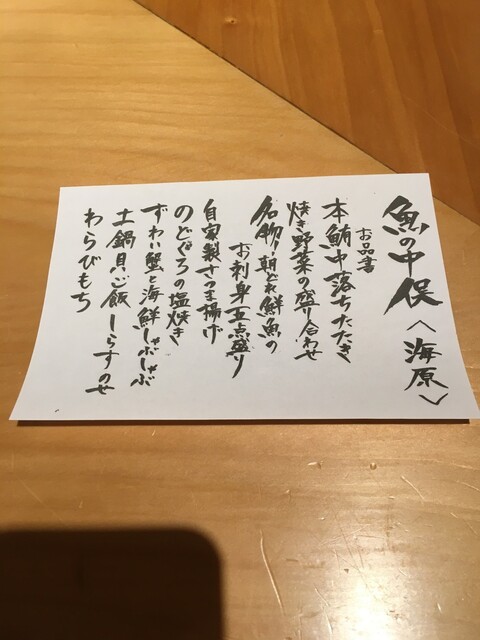 魚の中俣〈海原〉
お品書
本鮪中落ちたたき
焼き野菜の盛り合わせ
名物!朝どれ鮮魚の
お刺身五点盛り
自家製さつま揚げ
のどぐろの塩焼き
ずわい蟹と海鮮しゃぶしゃぶ
土鍋貝ご飯しらすのせ
わらびもち